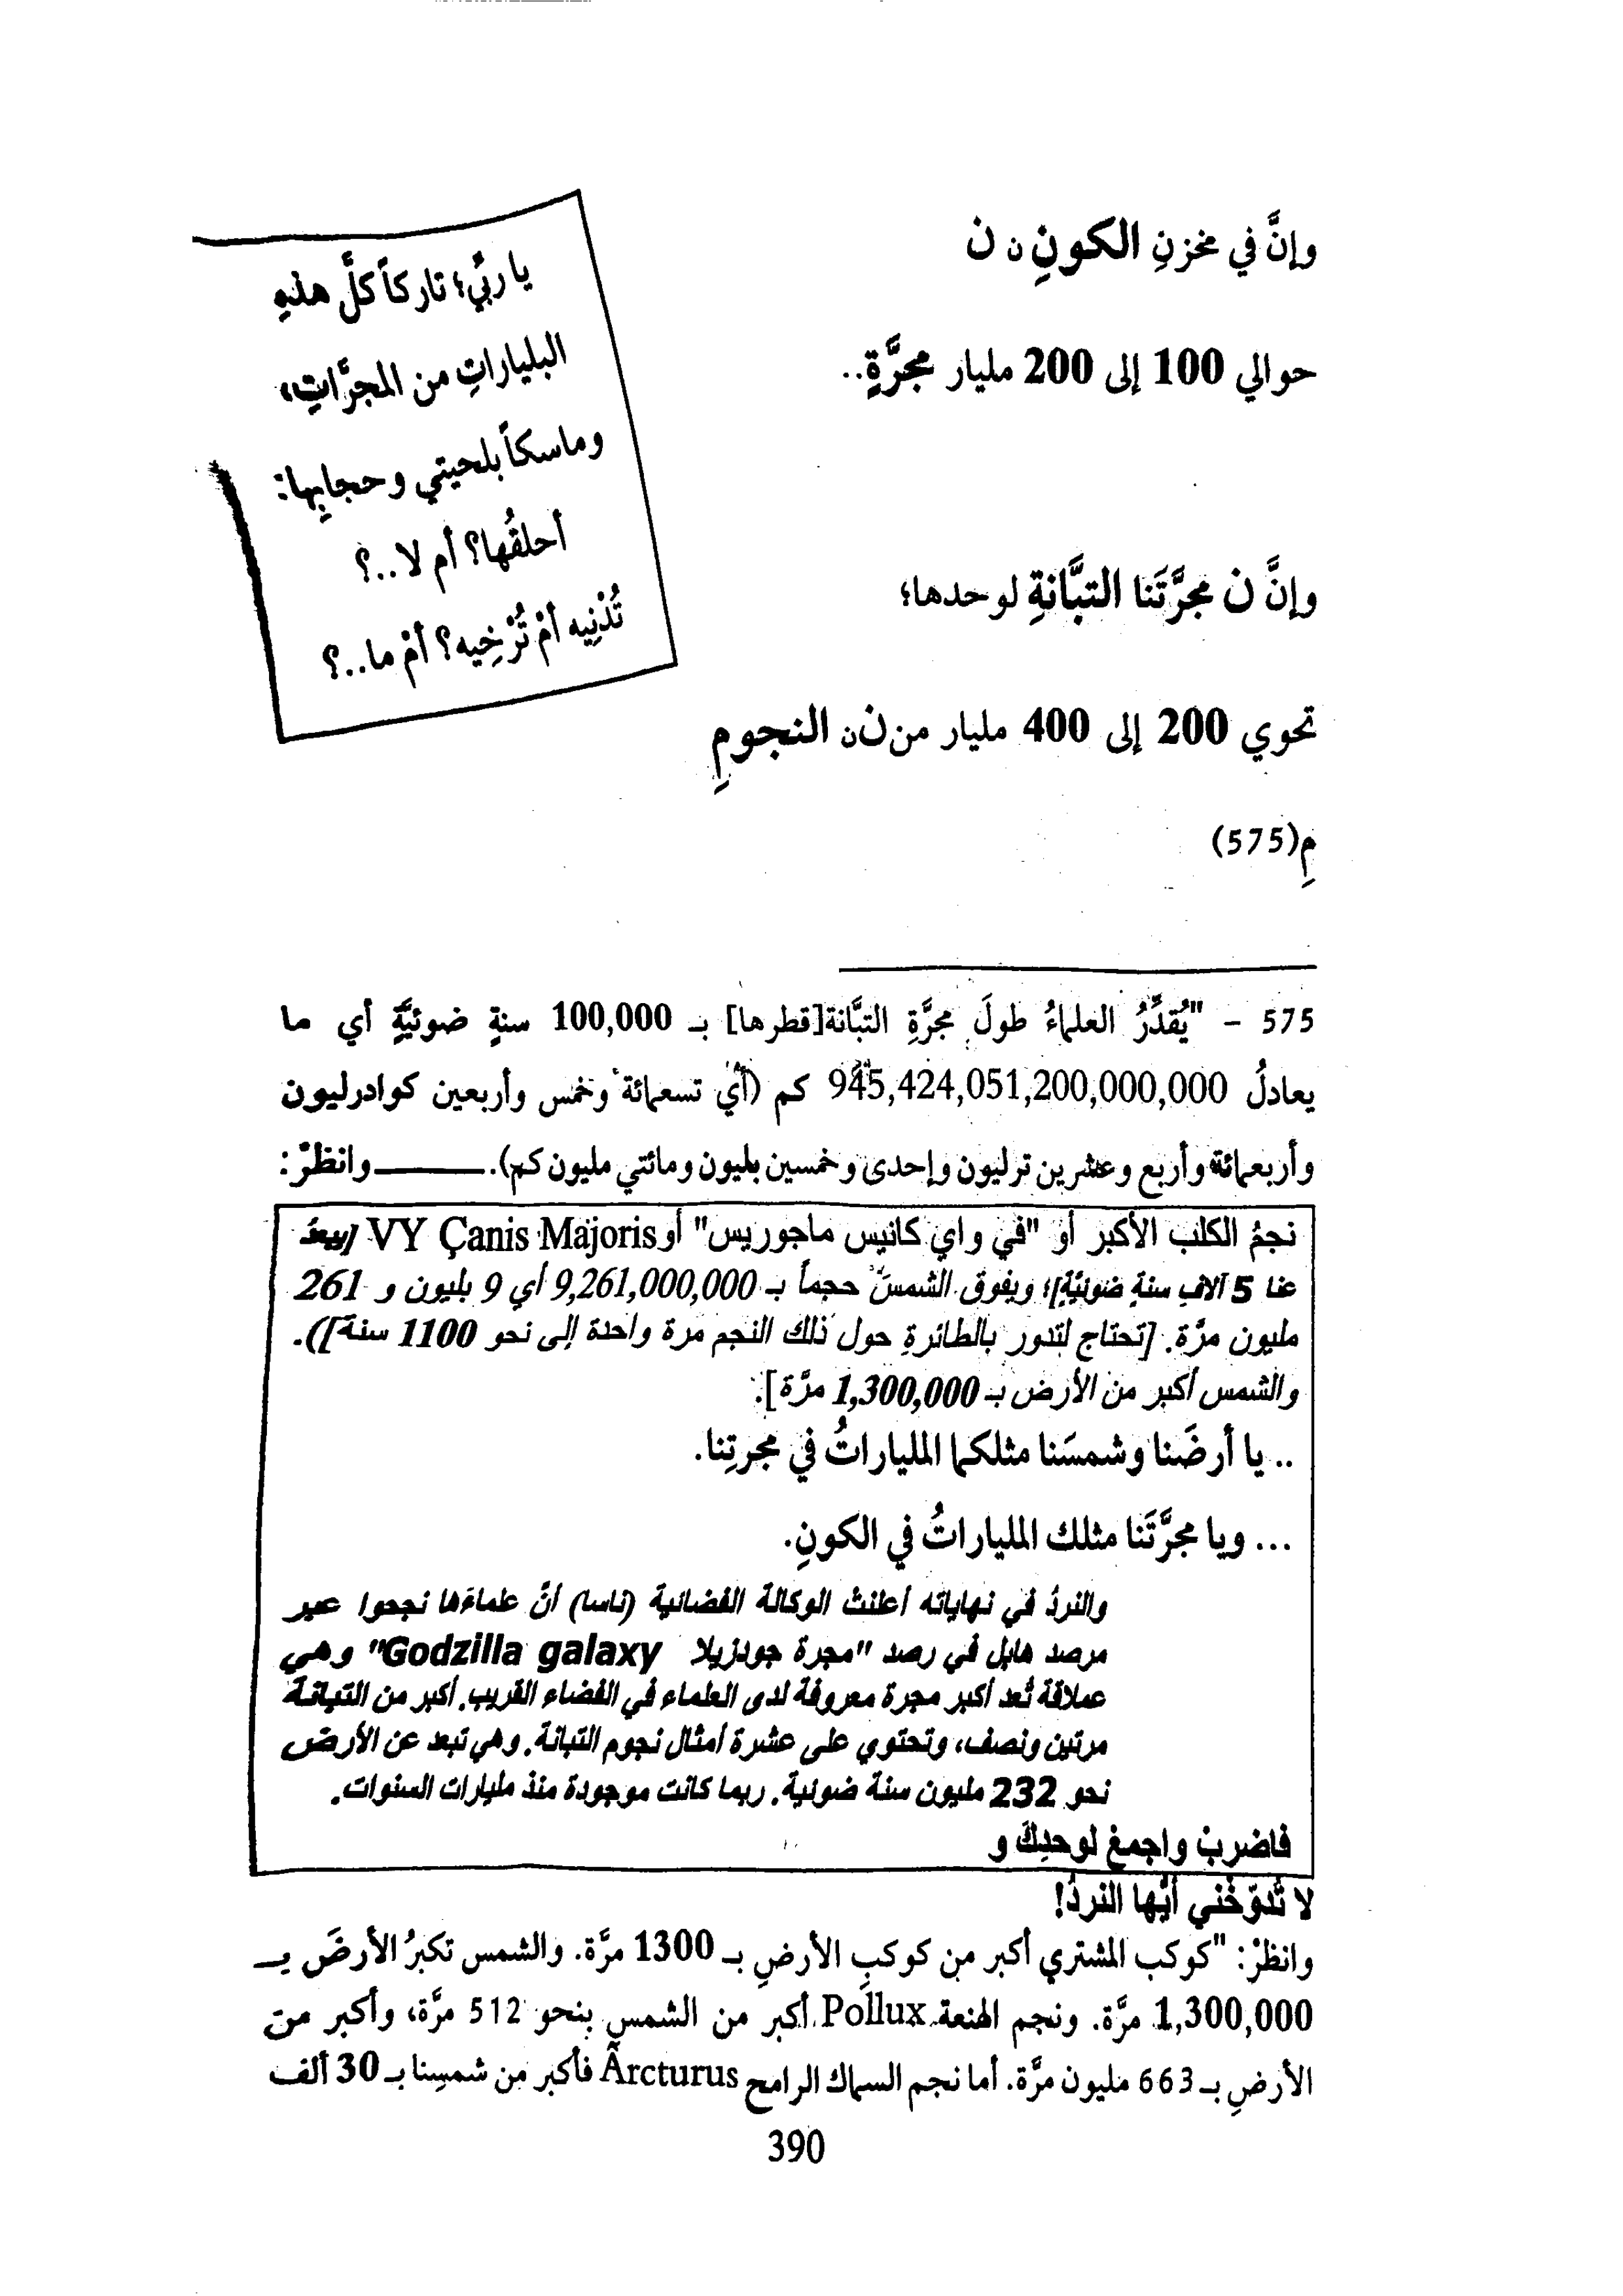 وإنَّ في مخزنِ الكونِ ن ن
حوالي 100 إلى 200 مليار مجرَّةٍ..
وإنَّ ن مجرَّتَنا التبَّانةِ لوحدها؛
تحوي 200 إلى 400 مليار من ن ن النجومِ
مِ(575)
يا ربّي؛ تاركاً كلَّ هذهِ
البلياراتِ من المجرَّاتِ،
وماسكاً بلحيتي وحجابِها:
أحلقُها؟ أم لا..؟
تُدْنِيه أمْ تُرْخِيه؟ أمْ ما..؟
575 - "يُقدِّرُ العلماءُ طولَ مجرَّةِ التبَّانة[قطرها] بـ 100,000 سنةٍ ضوئيَّةٍ أي ما
يعادلُ 945,424,051,200,000,000 كم (أيْ تسعمائة وخمس وأربعين كوادرليون
وأربعمائة وأربع وعشرين ترليون وإحدى وخمسين بليون ومائتي مليون كم).ـــــــــ وانظرْ:
نجمُ الكلب الأكبر أو "في واي كانيس ماجوريس" أو VY Çanis Majoris [يبعدُ
عنا 5 آلافِ سنةٍ ضوئيّةٍ]؛ ويفوق الشمسَ حجماً بـ 9,261,000,000 أي 9 بليون و 261
مليون مرَّة. [تحتاج لتدور بالطائرةِ حول ذلك النجم مرة واحدة إلى نحو 1100 سنة]).
والشمس أكبر من الأرض بـ 1,300,000 مرَّة].
.. يا أرضَنا وشمسَنا مثلكما الملياراتُ في مجرتِنا.
... ويا مجرَّتَنا مثلك الملياراتُ في الكونِ.
والنردُ في نهاياته أعلنتْ الوكالة الفضائية (ناسا) أنَّ علماءَها نجحوا عبر
مرصد هابل في رصد "مجرة جودزيلا Godzilla galaxy" وهي
عملاقة تُعد أكبر مجرة معروفة لدى العلماء في الفضاء القريب. أكبر من التبانة
مرتين ونصف، وتحتوي على عشرة أمثال نجوم التبانة. وهي تبعد عن الأرض
نحو 232 مليون سنة ضوئية. ربما كانت موجودة منذ مليارات السنوات.
فاضربْ واجمعْ لوحدِكَ و
لا تُدوّخْني أيُّها النردُ!
وانظرْ: "كوكب المشتري أكبر من كوكبِ الأرضِ بـ 1300 مرَّة. والشمس تكبرُ الأرضَ بـ
1,300,000 مرَّة. ونجم الهنعة Pollux أكبر من الشمس بنحو 512 مرَّة، وأكبر من
الأرضِ بـ 663 مليون مرَّة. أما نجم السماك الرامح Ãrcturus فأكبر من شمسِنا بـ 30 ألف
390